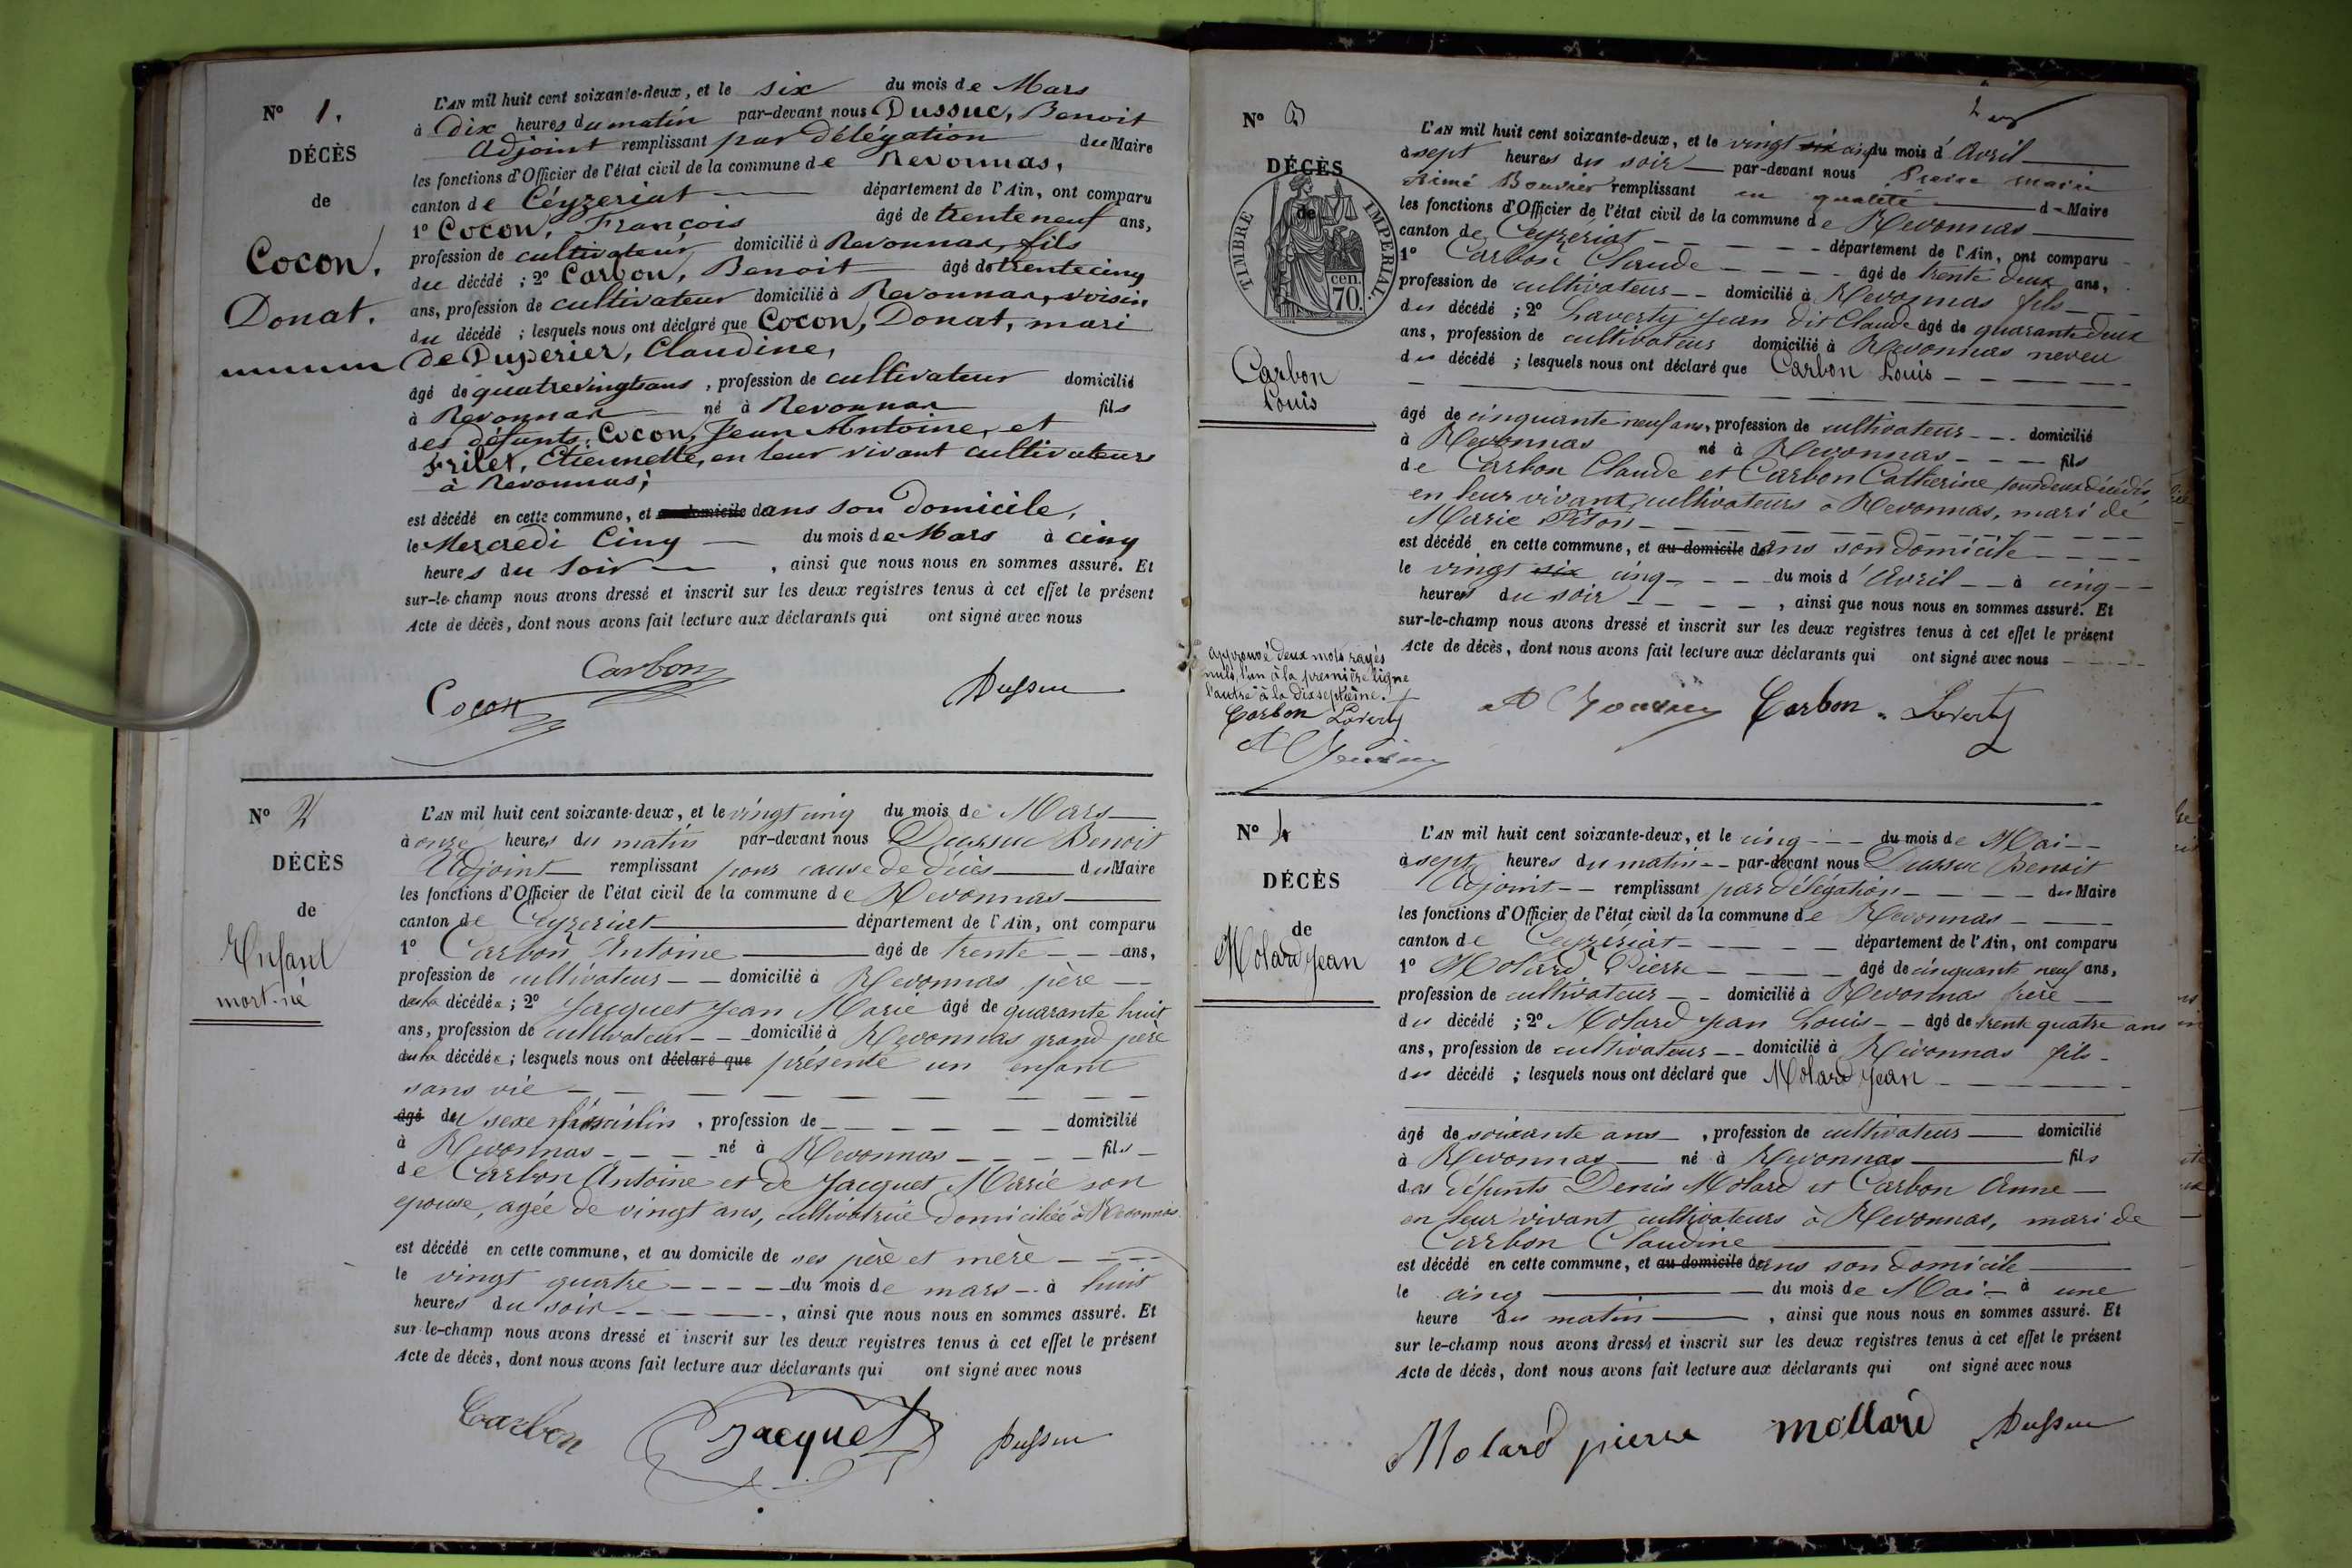 N° 1.
DÉCÈS
de
Cocon,
Donat.
L'AN mil huit cent soixante-deux, et le six du mois de Mars
à Dix heures du matin par-devant nous Dussuc, Benoit
Adjoint remplissant par Délégation du Maire
les fonctions d'Officier de l'état civil de la commune de Revonnas,
canton de Céyzeriat département de l'Ain, ont comparu
1° Cocon, François âgé de trente neuf ans,
profession de cultivateur domicilié à Revonnas, fils
du décédé ; 2° Carbon, Benoit âgé de trente cinq
ans, profession de cultivateur domicilié à Revonnas, voisin
du décédé ; lesquels nous ont déclaré que Cocon, Donat, mari
de Duperier, Claudine,
âgé de quatre vingts ans , profession de cultivateur domicilié
à Revonnas né à Revonnas fils
des défunts, Cocon, Jean Antoine, et
Frilet, Etiennette, en leur vivant cultivateurs
à Revonnas;
est décédé en cette commune, et au domicile dans son Domicile,
le Mercredi Cinq du mois de Mars à cinq
heures du soir , ainsi que nous nous en sommes assuré. Et
sur-le-champ nous avons dressé et inscrit sur les deux registres tenus à cet effet le présent
Acte de décès, dont nous avons fait lecture aux déclarants qui ont signé avec nous
Carbon
Cocon Dussuc
N° 2
DÉCÈS
de
Enfant
mort-né
L'AN mil huit cent soixante-deux, et le vingt cinq du mois de Mars
à onze heures du matin par-devant nous Dussuc Benoit
Adjoint remplissant pour cause de décès du Maire
les fonctions d'Officier de l'état civil de la commune de Revonnas
canton de Ceyzeriat département de l'Ain, ont comparu
1° Carbon Antoine âgé de trente ans,
profession de cultivateur domicilié à Revonnas, père
décédé ; 2° Jacquet Jean Marie âgé de quarante huit
ans, profession de cultivateur domicilié à Revonnas grand père
décédé ; lesquels nous ont déclaré que présenté un enfant
sans vie
âgé du sexe masculin , profession de domicilié
à Revonnas né à Revonnas fils
de Carbon Antoine et de Jacquet Marie son
epouse, agée de vingt ans, cultivatrice domiciliée à Revonnas
est décédé en cette commune, et au domicile de ses père et mère
le vingt quatre du mois de mars à huit
heures du soir , ainsi que nous nous en sommes assuré. Et
sur-le-champ nous avons dressé et inscrit sur les deux registres tenus à cet effet le présent
Acte de décès, dont nous avons fait lecture aux déclarants qui ont signé avec nous
Carbon Jacquet Dussuc
N° 3
DÉCÈS
de
TIMBRE IMPÉRIAL.
70 cen.
Carbon
Louis
L'AN mil huit cent soixante-deux, et le vingt six cinq du mois d'Avril
à sept heures du soir par-devant nous Pierre Marie
Aimé Bouvier remplissant en qualité de Maire
les fonctions d'Officier de l'état civil de la commune de Revonnas
canton de Ceyzériat département de l'Ain, ont comparu
1° Carbon Claude âgé de trente deux ans,
profession de cultivateur domicilié à Revonnas fils
du décédé ; 2° Laverty Jean dit Claude âgé de quarante deux
ans, profession de cultivateur domicilié à Revonnas neveu
du décédé ; lesquels nous ont déclaré que Carbon Louis
âgé de cinquante neuf ans, profession de cultivateur domicilié
à Revonnas né à Revonnas fils
de Carbon Claude et Carbon Catherine tous deux décédés,
en leur vivant cultivateurs à Revonnas, mari de
Marie Piton
est décédé en cette commune, et au domicile dans son domicile
le vingt six cinq du mois d'Avril à cinq
heures du soir , ainsi que nous nous en sommes assuré. Et
sur-le-champ nous avons dressé et inscrit sur les deux registres tenus à cet effet le présent
Acte de décès, dont nous avons fait lecture aux déclarants qui ont signé avec nous
Approuvé deux mots rayés
nuls, l'un à la première ligne
l'autre à la dixseptième.
Carbon Laverty
A Bouvier
A Bouvier Carbon Laverty
N° 4
DÉCÈS
de
Molard Jean
L'AN mil huit cent soixante-deux, et le cinq du mois de Mai
à sept heures du matin par-devant nous Dussuc Benoit
Adjoint remplissant par délégation du Maire
les fonctions d'Officier de l'état civil de la commune de Revonnas
canton de Ceyzériat département de l'Ain, ont comparu
1° Molard Pierre âgé de cinquante neuf ans,
profession de cultivateur domicilié à Revonnas frère
du décédé ; 2° Molard Jean Louis âgé de trente quatre ans
ans, profession de cultivateur domicilié à Revonnas fils
du décédé ; lesquels nous ont déclaré que Molard Jean
âgé de soixante ans , profession de cultivateur domicilié
à Revonnas né à Revonnas fils
des défunts Denis Molard et Carbon Anne
en leur vivant cultivateurs à Revonnas, mari de
Carbon Claudine
est décédé en cette commune, et au domicile dans son domicile
le cinq du mois de Mai à une
heure du matin , ainsi que nous nous en sommes assuré. Et
sur le-champ nous avons dressé et inscrit sur les deux registres tenus à cet effet le présent
Acte de décès, dont nous avons fait lecture aux déclarants qui ont signé avec nous
Molard pierre mollard Dussuc